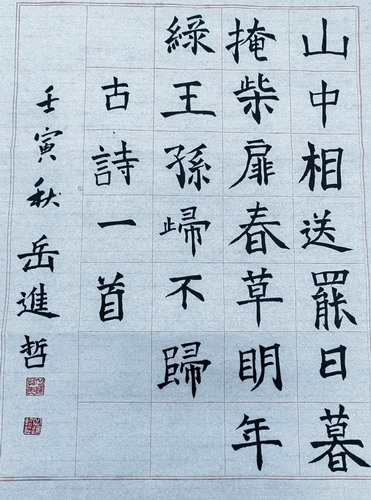 山中相送罷日暮
掩柴扉春草明年
綠王孫㱕不歸
古詩一首
壬寅秋岳進哲